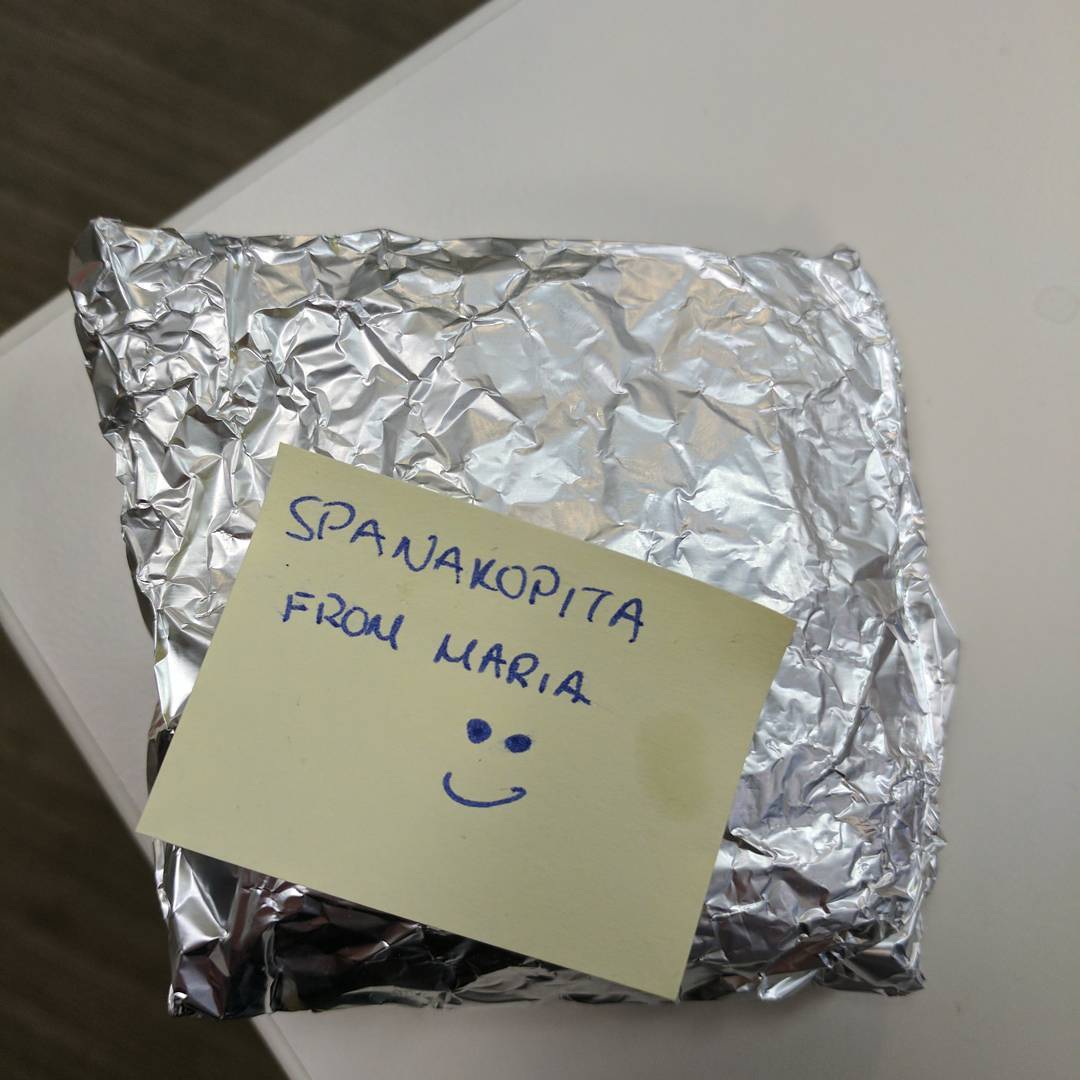 SPANAKOPITA
FROM MARIA